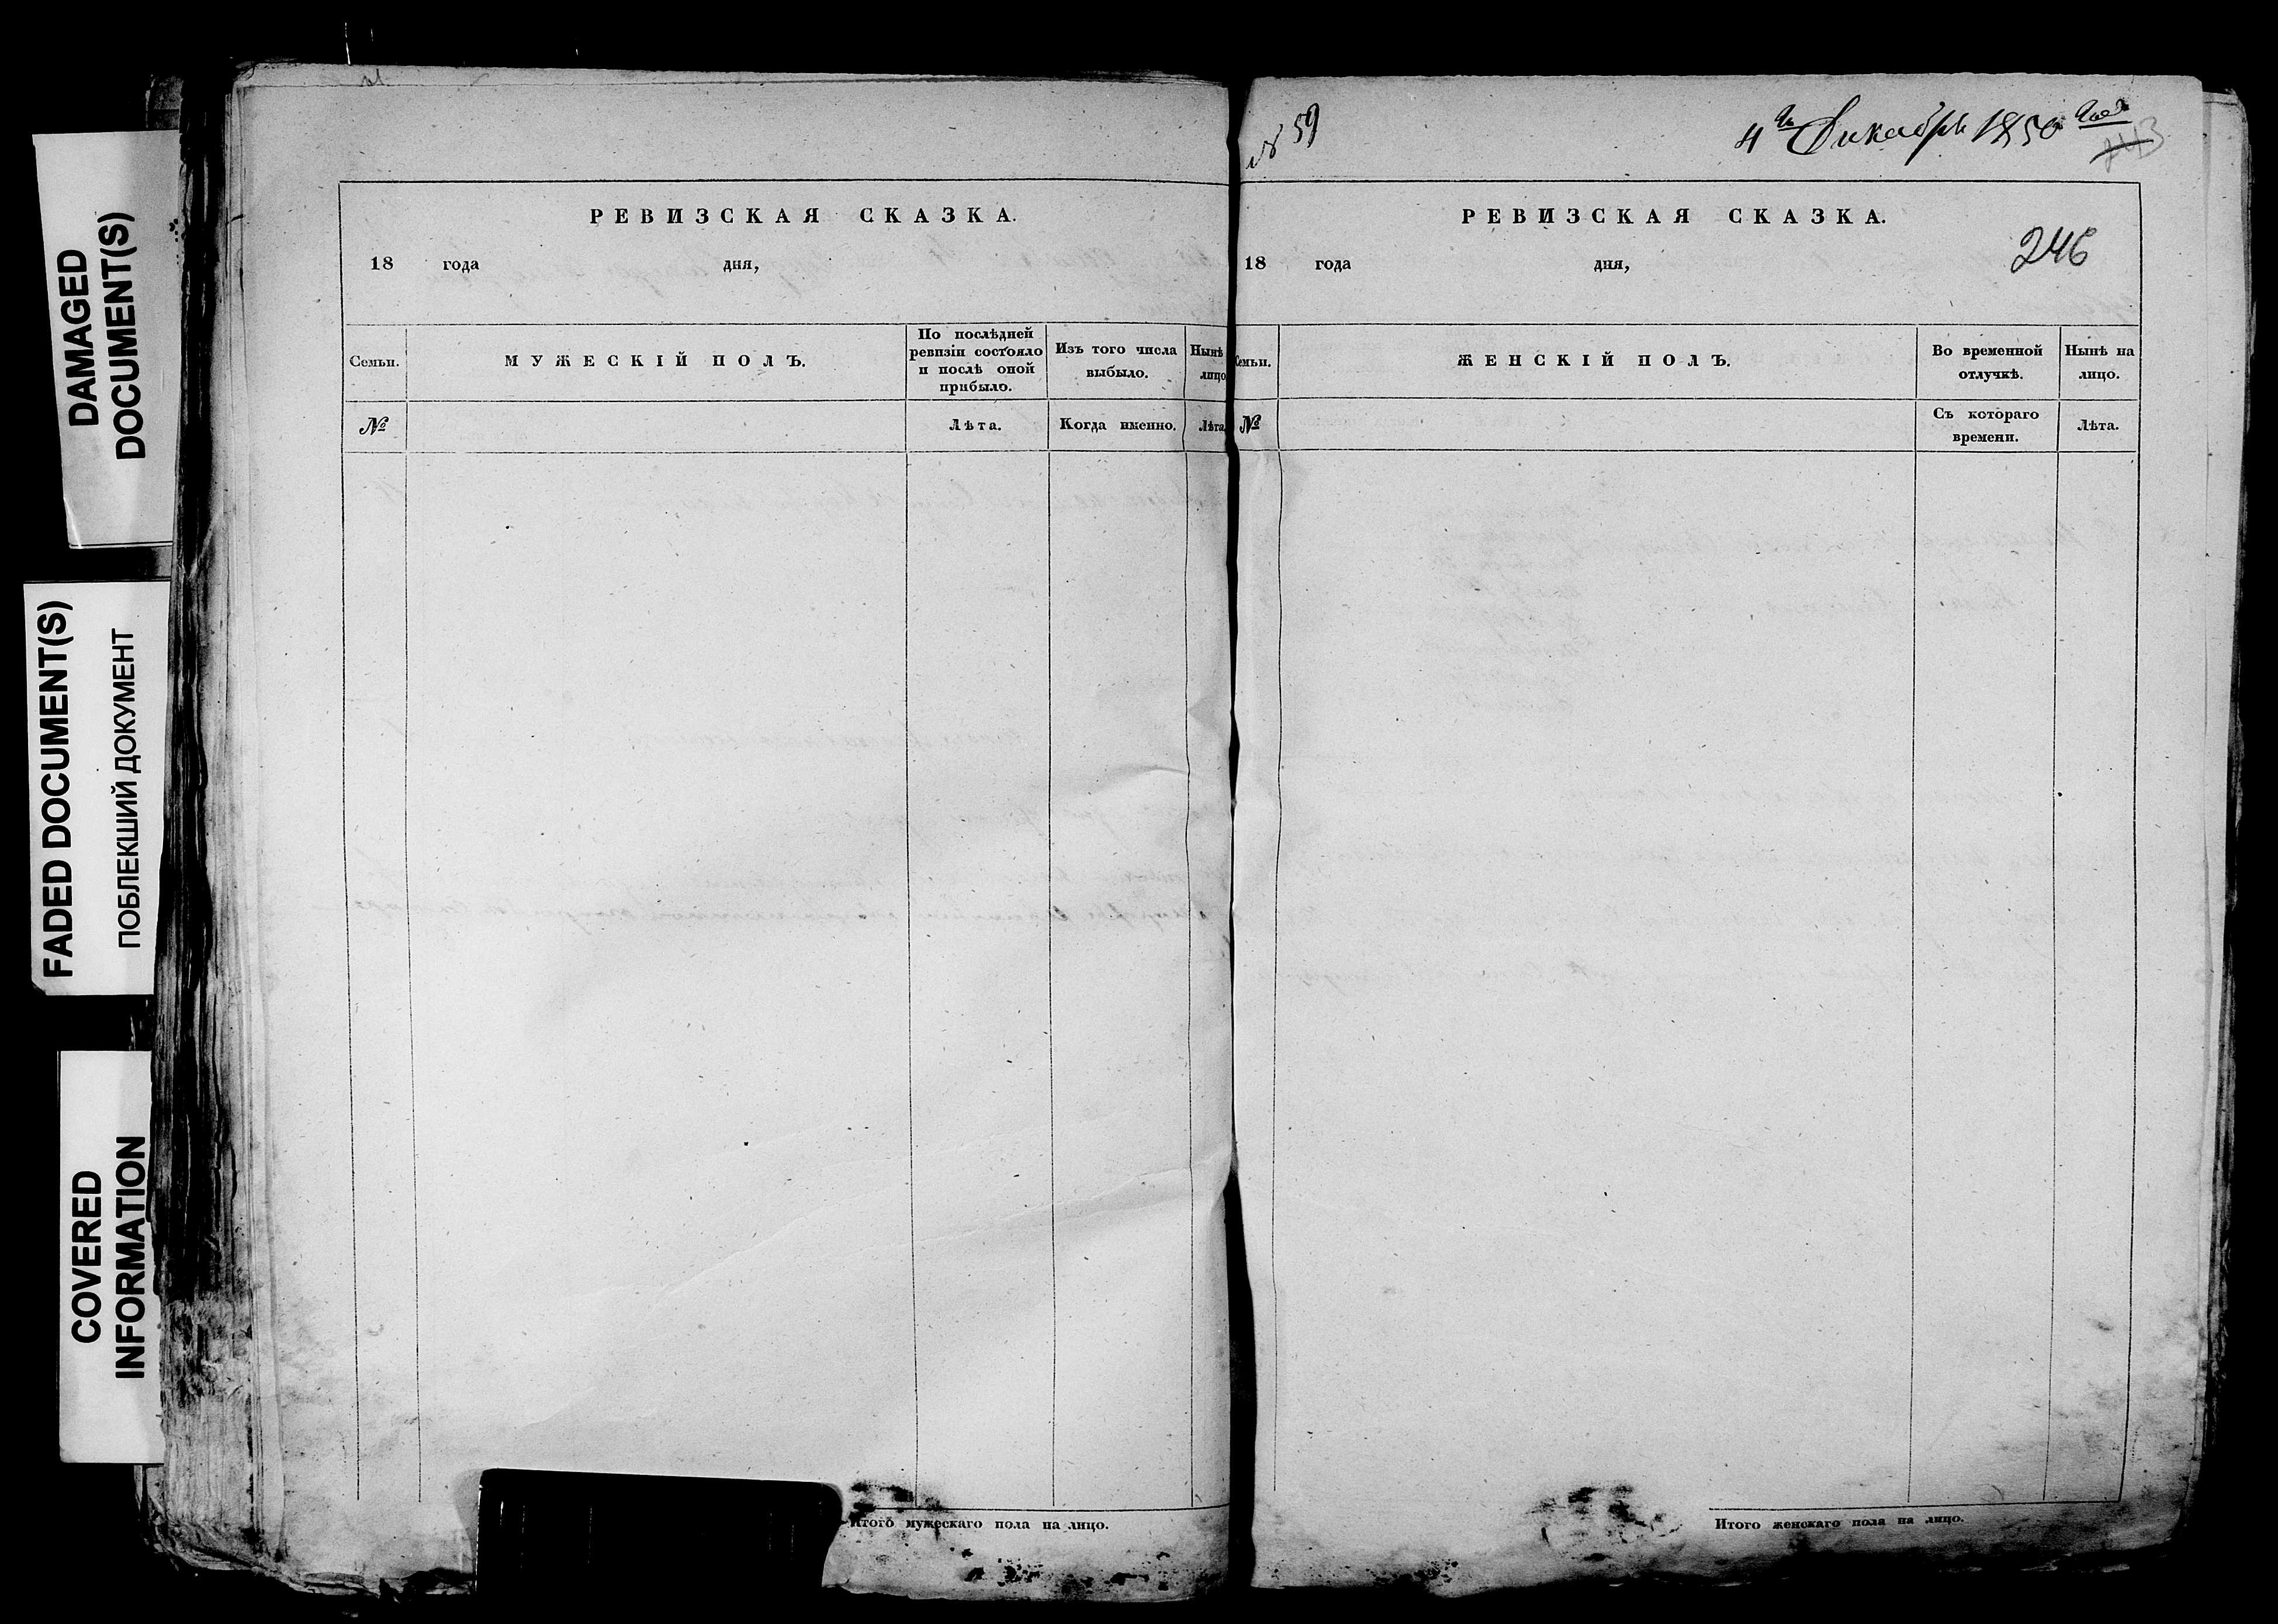 DAMAGED
DOCUMENT(S)
FADED DOCUMENT(S)
ПОБЛЕКШИЙ ДОКУМЕНТ
COVERED
INFORMATION
РЕВИЗСКАЯ СКАЗКА.
18 года дня,
Семьи.
МУЖЕСКІЙ ПОЛЪ.
По послѣдней
ревизіи состояло
и послѣ оной
прибыло.
Изъ того числа
выбыло.
Нынѣ
лицо
№
Лѣта.
Когда именно.
Лѣта.
Итого мужескаго пола на лицо.
№ 59
4го Декабря 1850 года
143
РЕВИЗСКАЯ СКАЗКА.
246
18 года дня,
Семьи.
ЖЕНСКІЙ ПОЛЪ.
Во временной
отлучкѣ.
Нынѣ на
лицо.
№
Съ котораго
времени.
Лѣта.
Итого женскаго пола на лицо.